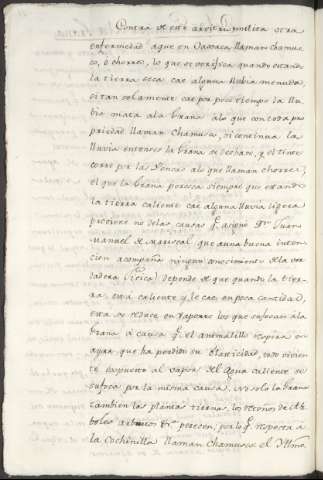 Contra de este arbitrio milita otra
enfermedad aque en Oaxaca llaman chamus-
co, ó chorreo, lo que se verifica quando estando
la tierra seca cae alguna llubia menuda,
si tan solamente cae por poco tiempo la llu-
bia mata ala Grana alo que con toda pro-
piedad llaman Chamusco, si continua la
lluvia entonces la Grana se deshace, y el tinte
corre por las Pencas alo que llaman chorreo;
el que la Grana peresca siempre que estando
la tierra caliente cae alguna lluvia ligera
proviene no de las causas qe. asigna Dn. Juan
Manuel de Mariscal que auna buena inten-
cion acompaña ningun conocimiento de la ver-
dadera fisica) depende de que quando la tier-
ra está caliente y le cae en poca cantidad,
esta se reduce en vapores los que sufocan ála
Grana á causa qe. el animalillo respira un
ayre que ha perdido su elasticidad, todo vivien-
te expuesto al vapor del Agua caliente se
sufoca por la misma causa, no solo la Grana
tambien las plantas tiernas, los retoños de Ar-
boles perecen, por lo qe. respecta á
la Cochinilla llaman Chamusco el Yllmo.